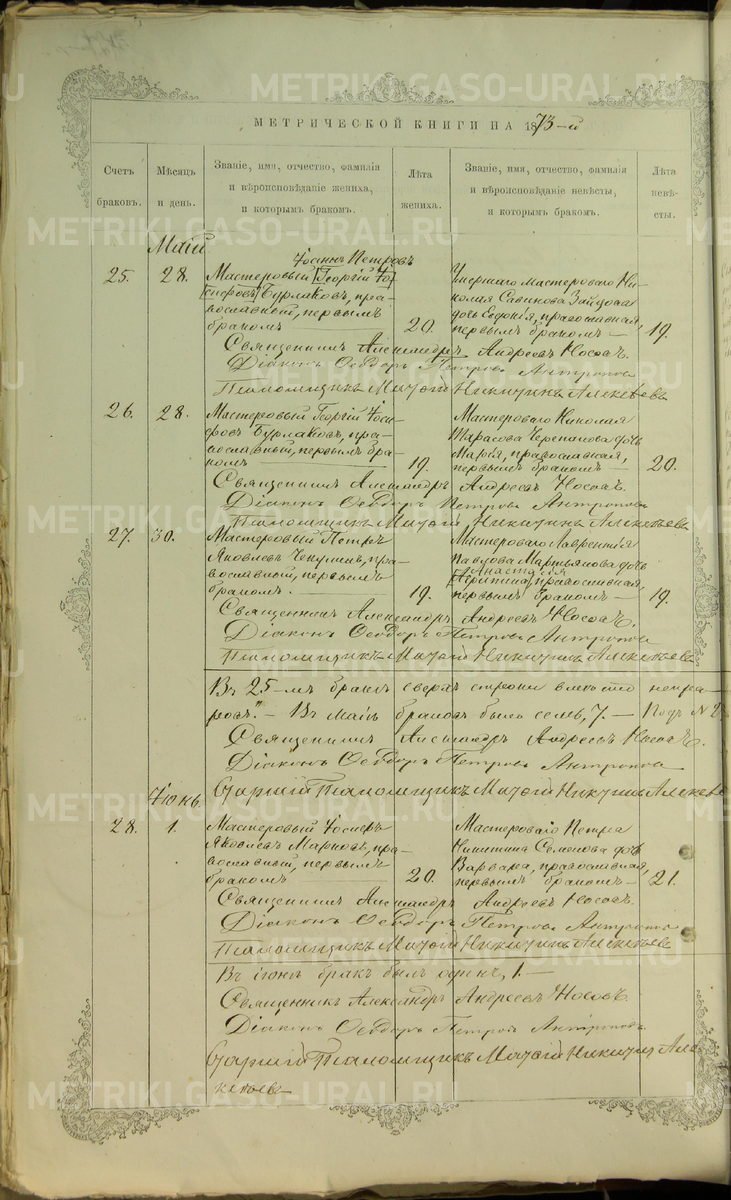 METRIKI.GASO-URAL.RU
МЕТРИЧЕСКОЙ КНИГИ НА 1873-й
Счетъ браковъ.
Мѣсяцъ и день.
Званіе, имя, отчество, фамилія
и вѣроисповѣданіе жениха,
и которымъ бракомъ.
Лѣта жениха.
Званіе, имя, отчество, фамилія
и вѣроисповѣданіе невѣсты,
и которымъ бракомъ.
Лѣта невѣсты.
Май
25. 28.
Іосифъ Петровъ
Мастеровый Георгій Іо-
сифовъ Бурлаковъ, пра-
вославный, первымъ
бракомъ
20.
Умершаго мастероваго Ни-
колая Савинова
дочь Евдокія, православная,
первымъ бракомъ —
19.
Священникъ Александръ Андреевъ Носовъ.
Діаконъ Ѳеодоръ Петровъ Антроповъ
Псаломщикъ Матѳій Никитинъ Алексѣевъ
26. 28.
Мастеровый Георгій Іоси-
фовъ Бурлаковъ, пра-
вославный, первымъ бра-
комъ
19.
Мастероваго Николая
Тарасова Черепанова дочь
Марія, православная,
первымъ бракомъ
20.
Священникъ Александръ Андреевъ Носовъ.
Діаконъ Ѳеодоръ Петровъ Антроповъ
Псаломщикъ Матѳій Никитинъ Алексѣевъ
27. 30.
Мастеровый Петръ
Яковлевъ Чекулинъ, пра-
вославный, первымъ
бракомъ.
19.
Мастероваго Лаврентія
Павлова Мартьянова дочь
Анастасія
православная,
первымъ бракомъ —
19.
Священникъ Александръ Андреевъ Носовъ.
Діаконъ Ѳеодоръ Петровъ Антроповъ
Псаломщикъ Матѳій Никитинъ Алексѣевъ
Въ 25-мъ бракѣ сверхъ строки
Въ маѣ браковъ было семь, 7. —
Священникъ Александръ Андреевъ Носовъ.
Діаконъ Ѳеодоръ Петровъ Антроповъ
Старшій Псаломщикъ Матѳій Никитинъ Алексѣевъ
Іюнь
28. 1.
Мастеровый Іосифъ
Яковлевъ Марковъ, пра-
вославный, первымъ
бракомъ
20.
Мастероваго Петра
Никитина Семенова дочь
Варвара, православная,
первымъ бракомъ —
21.
Священникъ Александръ Андреевъ Носовъ.
Діаконъ Ѳеодоръ Петровъ Антроповъ
Псаломщикъ Матѳій Никитинъ Алексѣевъ
Въ іюнѣ бракъ былъ одинъ, 1. —
Священникъ Александръ Андреевъ Носовъ.
Діаконъ Ѳеодоръ Петровъ Антроповъ
Старшій Псаломщикъ Матѳій Никитинъ Але-
ксѣевъ